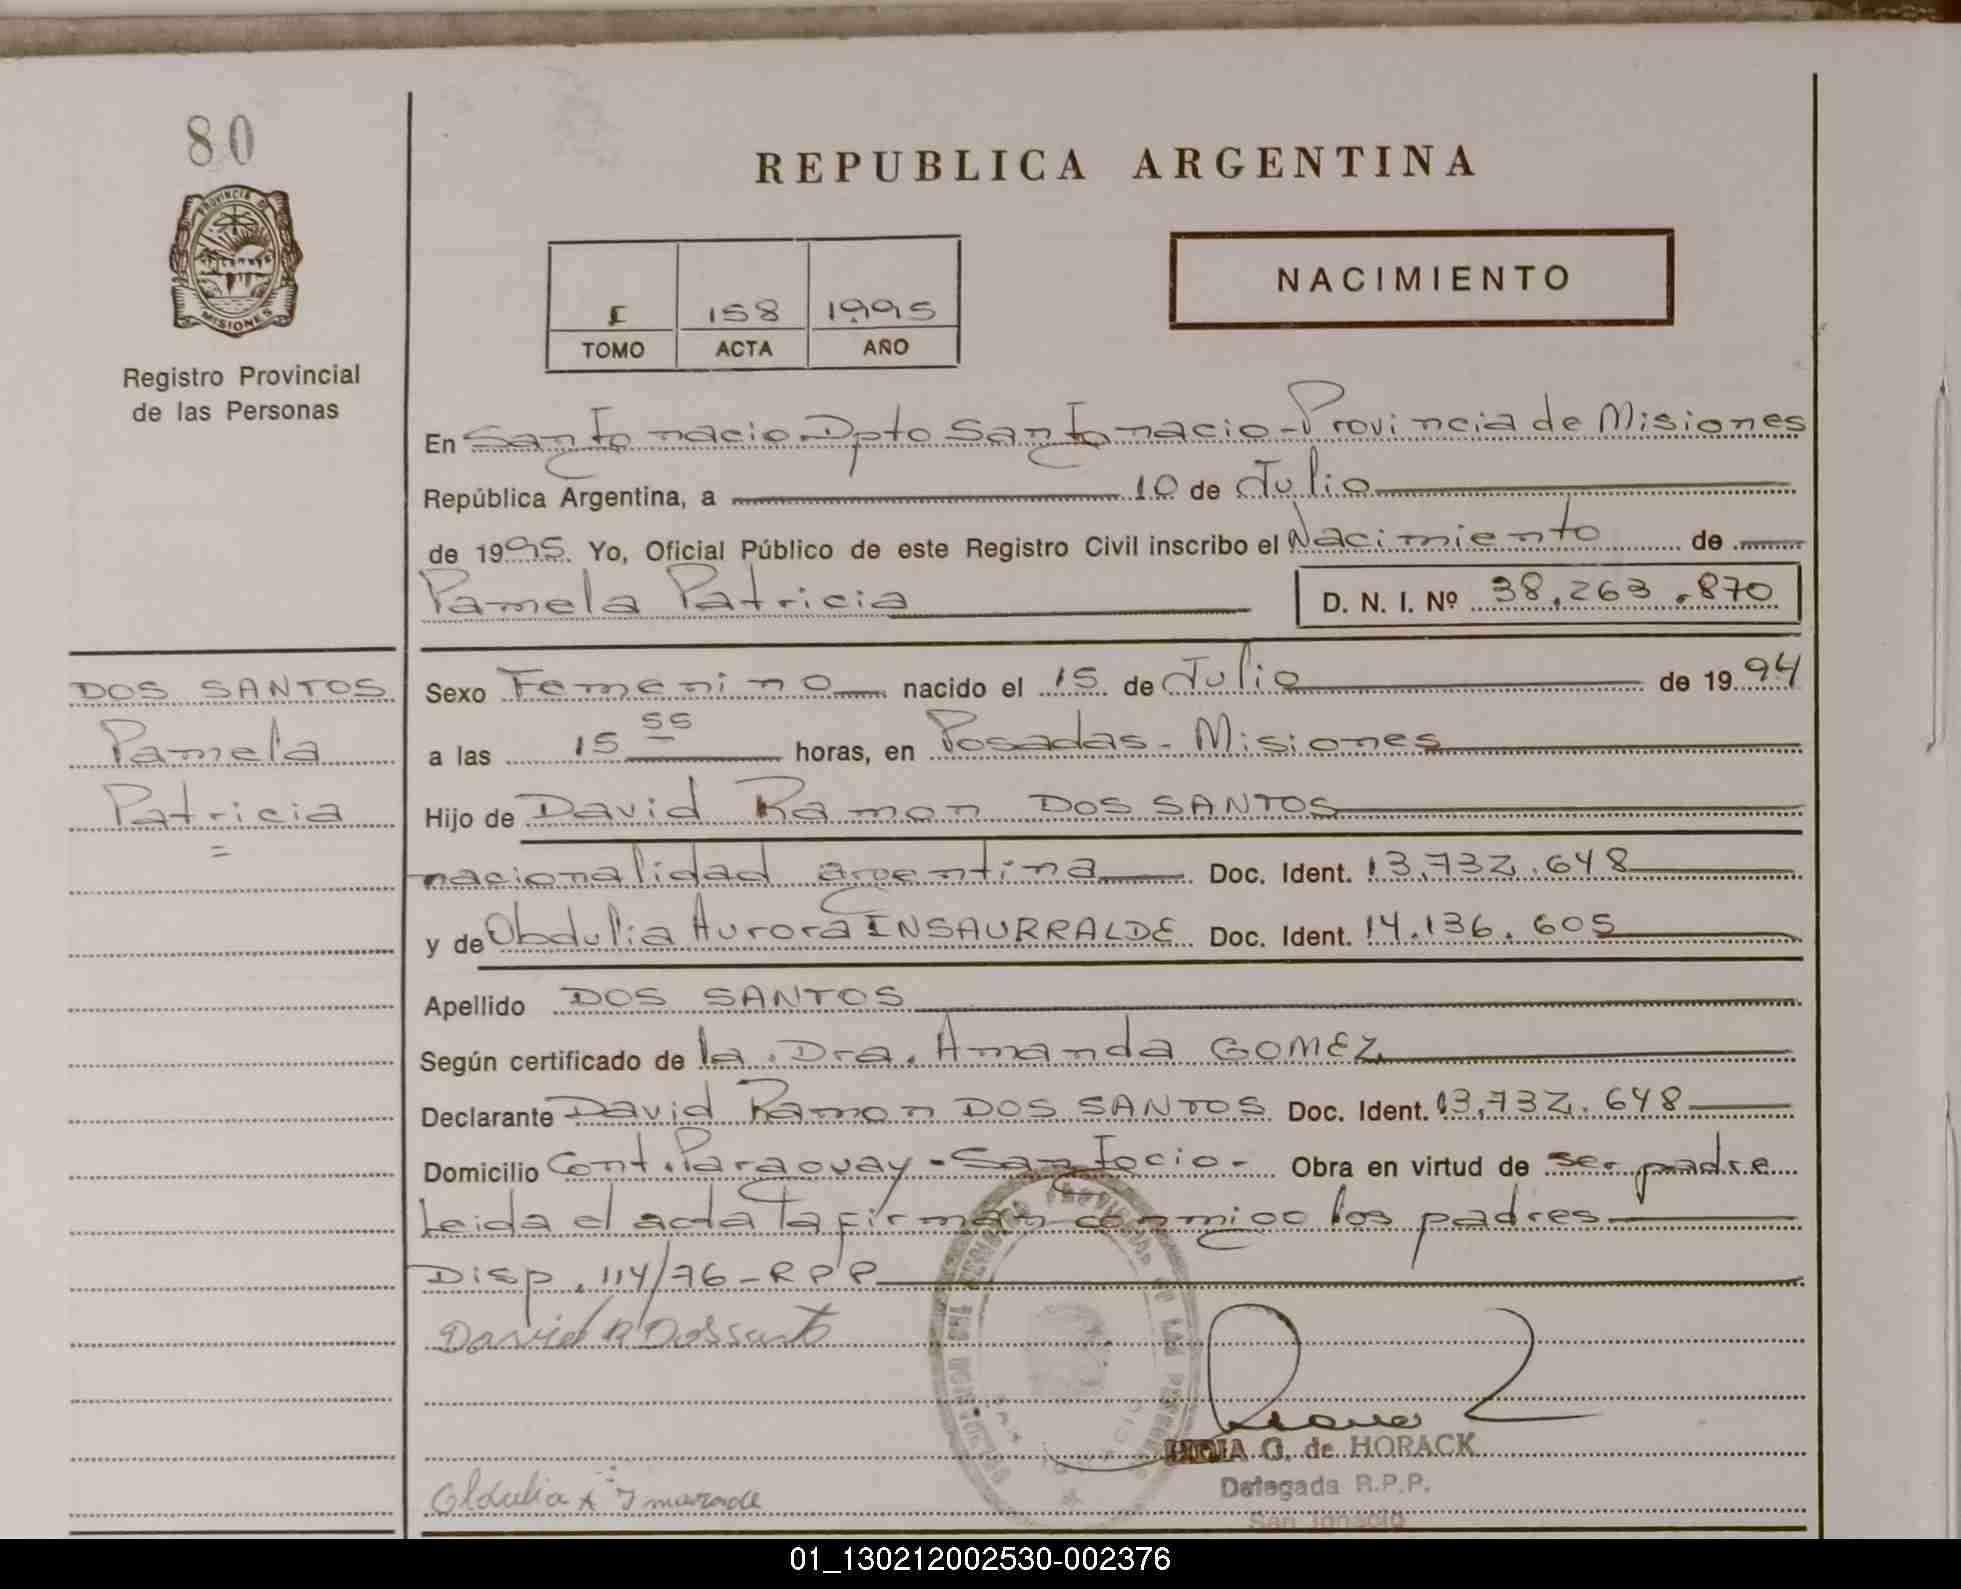 80
PROVINCIA DE
MISIONES
Registro Provincial
de las Personas
REPUBLICA ARGENTINA
NACIMIENTO
I 158 1995
TOMO ACTA AÑO
En San Ignacio Dpto San Ignacio - Provincia de Misiones
República Argentina, a 10 de Julio
de 1995. Yo, Oficial Público de este Registro Civil inscribo el Nacimiento de
Pamela Patricia D. N. I. Nº 38.263.870
DOS SANTOS
Pamela
Patricia
Sexo Femenino nacido el 15 de Julio de 1994
a las 15 55 horas, en Posadas - Misiones
Hijo de David Ramon DOS SANTOS
nacionalidad argentina Doc. Ident. 13.732.648
y de Obdulia Aurora INSAURRALDE Doc. Ident. 14.136.605
Apellido DOS SANTOS
Según certificado de la Dra. Amanda GOMEZ
Declarante David Ramon DOS SANTOS Doc. Ident. 13.732.648
Domicilio Cont. Paraguay - San Igcio - Obra en virtud de ser padre
Leida el acta la firman conmigo los padres
Disp. 114/76 - RPP
David R Dossanto
G. de HORACK
Delegada R.P.P.
San Ignacio
01_130212002530-002376